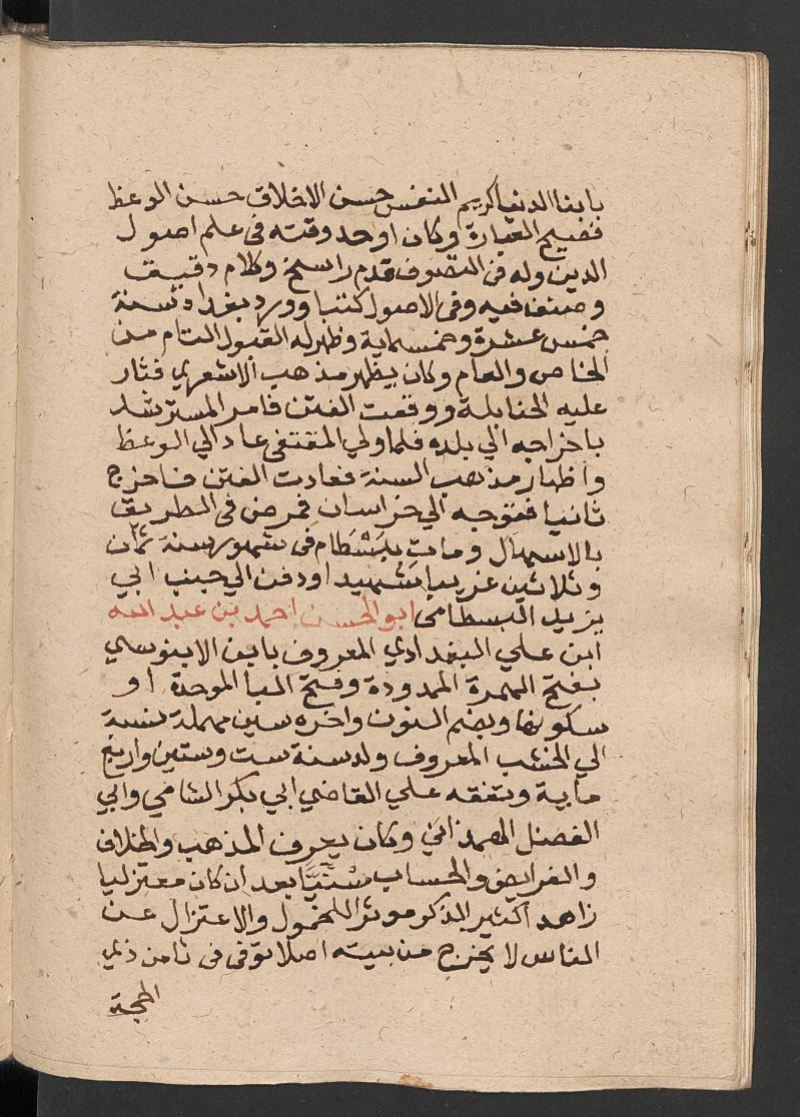 بابنا الدنيا كريم النفس حسن الاخلاق حسن الوعظ
فصيح العبارة وكان اوحد وقته فى علم اصول
الدين وله فى التصوف قدم راسخ وكلام دقيق
وصنف فيه وفى الاصول كتبا وورد بغداد سنة
خمس عشرة وخمسماية وظهر له القبول التام من
الخاص والعام وكان يظهر مذهب الاشعري فثار
عليه الحنابلة ووقعت الفتن فامر المسترشد
باخراجه الي بلده فلما ولي المقتفى عاد الي الوعظ
واظهار مذهب السنة فعادت الفتن فاخرج
ثانيا فتوجه الي خراسان فمرض فى الطريق
بالاسهال ومات ببسطام فى شهور سنة ثمان
وثلاثين غريبا شهيدا ودفن الي جنب ابي
يزيد البسطامى ابو الحسن احمد بن عبد الله
ابن علي البغدادي المعروف بابن الابنوسي
بفتح الهمزة الممدودة وفتح البا الموحدة او
سكونها وبضم النون واخره سين مهملة نسبة
الي الخشب المعروف ولد سنة ست وستين واربع
ماية وتفقه علي القاضي ابي بكر الشامي وابي
الفضل الهمذاني وكان يعرف المذهب والخلاف
والفرايض والحساب سُنّيًّا بعد ان كان معتزليا
زاهدا كثير الذكر موثرا للخمول والاعتزال عن
الناس لا يخرج من بيته اصلا توفى فى ثامن ذي
الحجة